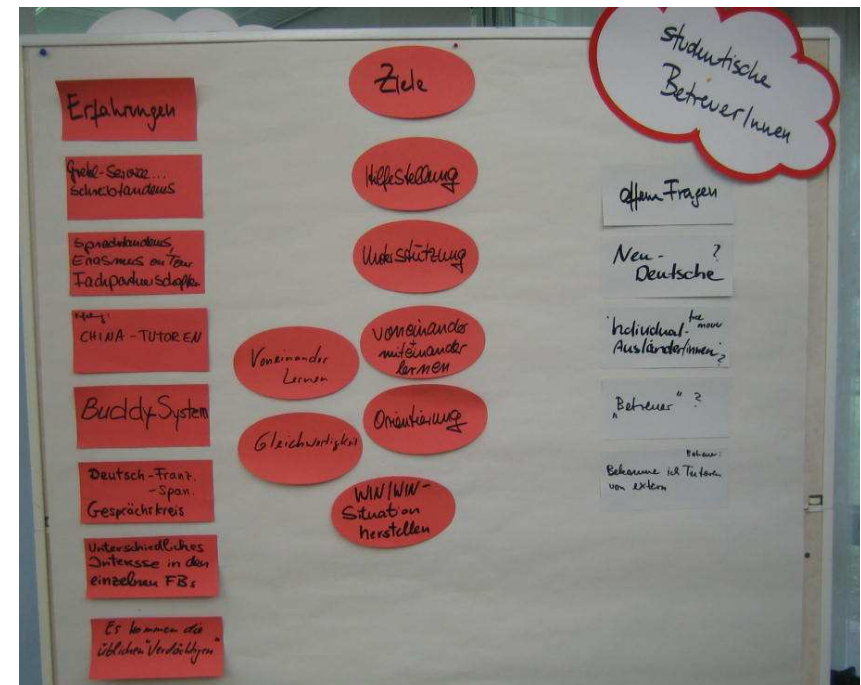 studentische
BetreuerInnen
Erfahrungen
Schreibtandems
Sprachtandems,
Erasmus on Tour
Fachpartnerschaften
CHINA-TUTOREN
Buddy-System
Deutsch-Franz.
-Span.
Gesprächskreis
Unterschiedliches
Interesse in den
einzelnen FBs
Es kommen die
üblichen "Verdächtigen"
Ziele
Hilfestellung
Unterstützung
Voneinander
miteinander
lernen
Voneinander
Lernen
Orientierung
Gleichwertigkeit
WIN/WIN-
Situation
herstellen
offene Fragen
Neu- ?
Deutsche
Individual- free mover
Ausländer/innen ?
"Betreuer" ?
Bekomme ich Tutoren
von extern